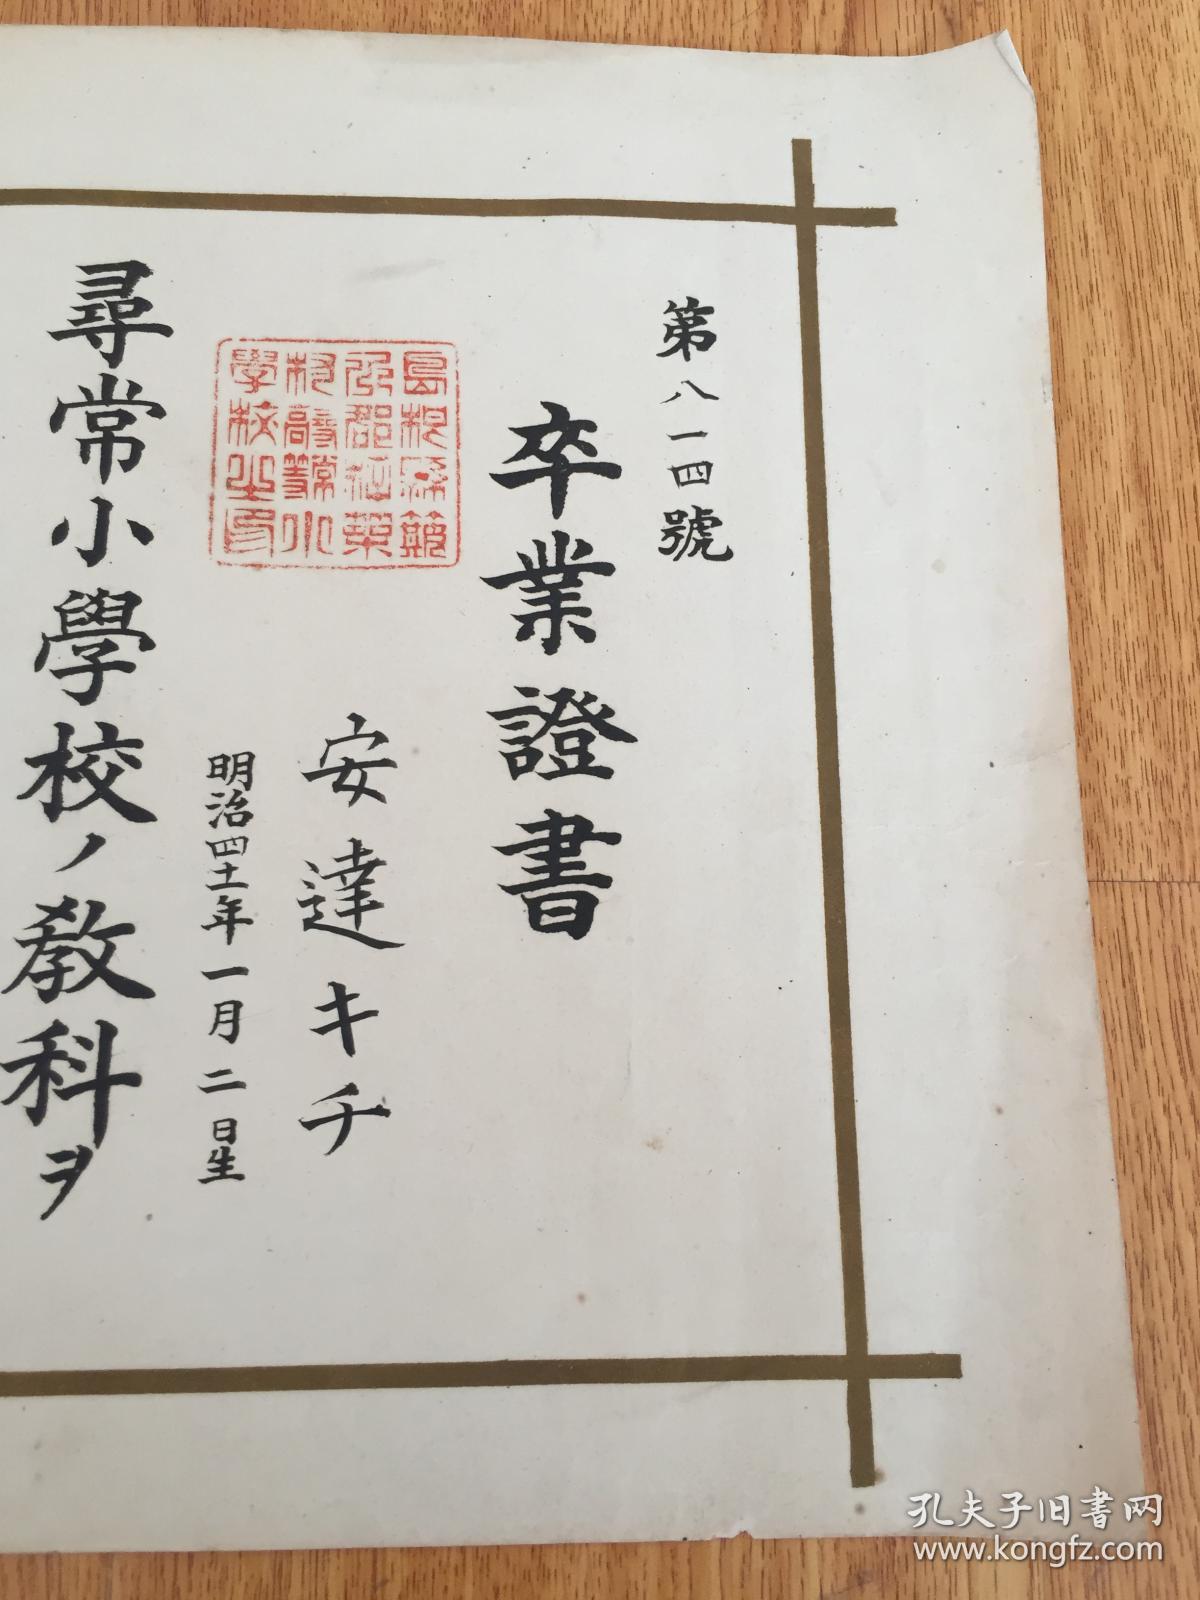 第八一四號
卒業證書
安達キチ
明治四十一年一月二日生
尋常小學校ノ教科ヲ
孔夫子旧书网
www.kongfz.com